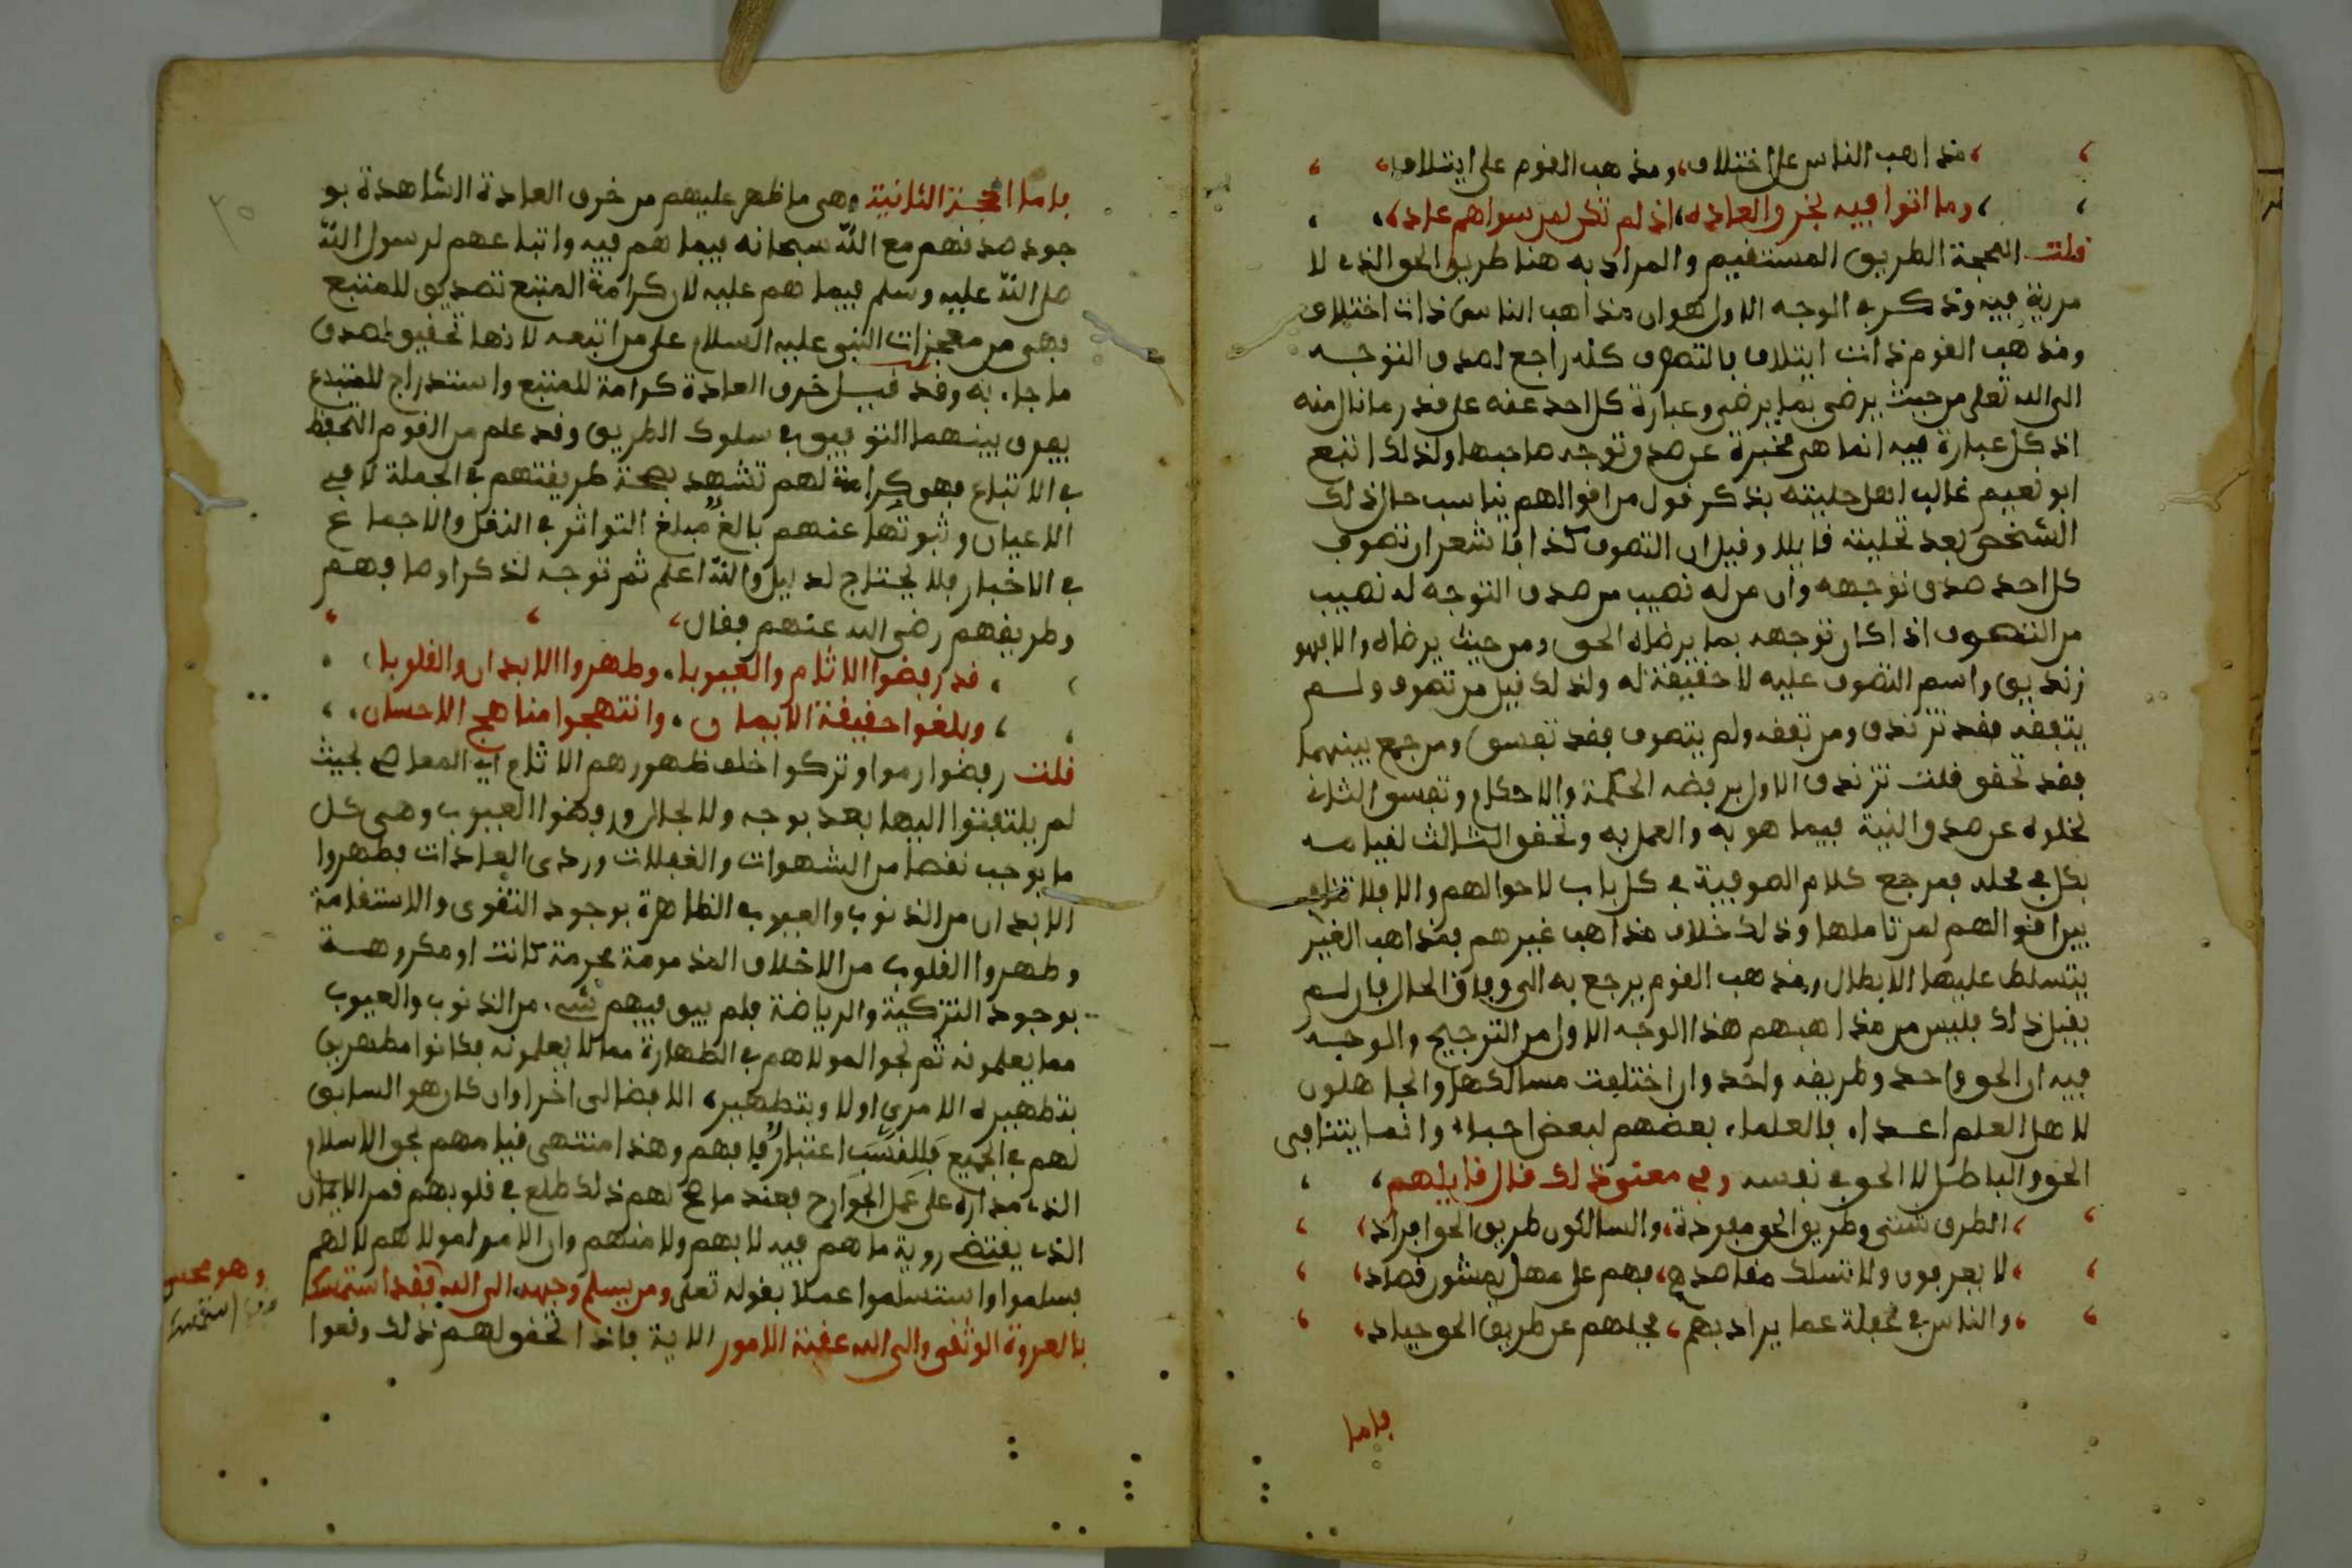 مذاهب الناس على اختلاف، ومذهب القوم على ايتلاف
وما اتوا فيه بخرق العاده، اذ لم تكن لمن سواهم عاده
قلت المحجة الطريق المستقيم والمراد به هنا طريق الحق الذي لا
مرية فيه وذكر في الوجه الاول هو ان مذاهب الناس ذات اختلاف
ومذهب القوم ذات ايتلاف بالتصوف كله راجع لصدق التوجه
الى الله تعلى من حيث يرضى بما يرضى وعبارة كل احد عنه على قدر ما نال منه
اذ كل عبارة فيه انما هي مخبرة عن صدق توجه صاحبها ولذلك اتبع
ابو نعيم غالب اهل حليته بذكر قول من اقوالهم يناسب حال ذلك
الشخص بعد تحليته قايلا وقيل ان التصوف كذا فاشعر ان تصوف
كل احد صدق توجهه وان من له نصيب من صدق التوجه له نصيب
من التصوف اذا كان توجهه بما يرضاه الحق ومن حيث يرضاه والا فهو
زنديق واسم التصوف عليه لا حقيقة له ولذلك قيل من تصوف ولم
يتفقه فقد تزندق ومن تفقه ولم يتصوف فقد تفسق ومن جمع بينهما
فقد تحقق قلت تزندق الاول برفضه الحكمة والاحكام وتفسق الثاني
لخلوه عن صدق النية فيما هو به والعمل به وتحقق الثالث لقيامه
بكل في محله فمرجع كلام الصوفية في كل باب لاحوالهم والا فلا
بين اقوالهم لمن تاملها وذلك خلاف مذاهب غيرهم فمذاهب الغير
يتسلط عليها الابطال ومذهب القوم يرجع به الى وفاق الحال فان لم
يقبل ذلك فليس من مذاهبهم هذا الوجه الاول من الترجيح والوجه
فيه ان الحق واحد وطريقه واحد وان اختلفت مسالكها والجاهلون
لاهل العلم اعداء فالعلماء بعضهم لبعض احباء وانما يتنافى
الحق والباطل لا الحق في نفسه وفي معنى ذلك قال قايلهم
الطرق شتى وطريق الحق مفردة، والسالكون طريق الحق افراد
لا يعرفون ولا تسلك مقاصدهم، فهم على مهل يمشون قصاد
والناس في غفلة عما يراد بهم، فجلهم عن طريق الحق حياد
فاما
فاما الحجة الثانية وهي ما ظهر عليهم من خرق العادة الشاهدة بو
جود صدقهم مع الله سبحانه فيما هم فيه واتباعهم لرسول الله
صلى الله عليه وسلم فيما هم عليه لان كرامة المتبع تصديق للمتبع
فهي من معجزات النبي عليه السلام على من اتبعه لانها تحقيق لصدق
ما جاء به وقد قيل خرق العادة كرامة للمتبع واستدراج للمبتدع
يفرق بينهما التوفيق في سلوك الطريق وقد علم من القوم التحفظ
في الاتباع فهو كرامة لهم تشهد بصحة طريقتهم في الجملة لا في
الاعيان وثبوتها عنهم بالغ مبلغ التواتر في النقل والاجماع
في الاخبار فلا يحتاج لدليل والله اعلم ثم توجه لذكر اوصافهم
وطريقهم رضي الله عنهم فقال
قد رفضوا الاثام والعيوبا، وطهروا الابدان والقلوبا
وبلغوا حقيقة الايمان، وانتهجوا مناهج الاحسان
قلت رفضوا رموا وتركوا خلف ظهورهم الاثام اي المعاصي بحيث
لم يلتفتوا اليها بعد بوجه ولا بحال ورفضوا العيوب وهي كل
ما يوجب نقصا من الشهوات والغفلات وردى العادات فطهروا
الابدان من الذنوب والعيوب الظاهرة بوجود التقوى والاستقامة
وطهروا القلوب من الاخلاق المذمومة محرمة كانت او مكروهة
بوجود التزكية والرياضة فلم يبق فيهم شيء من الذنوب والعيوب
مما يعلمونه ثم لجوا لمولاهم في الطهارة مما لا يعلمونه فكانوا مطهرين
بتطهيره الامري اولا وبتطهيره الافضالى اخرا وان كان هو السابق
لهم في الجميع فللنسب اعتبار فافهم وهذا منتهى قيامهم بحق الاسلام
الذي مداره على عمل الجوارح فعند ما صح لهم ذلك طلع في قلوبهم قمر الايمان
الذي يقتضي روية ما هم فيه لا بهم ولا منهم وان الامر لمولاهم لا لهم
فسلموا واستسلموا عملا بقوله تعلى ومن يسلم وجهه الى الله فقد استمسك
وهو محسن
بالعروة الوثقى والى الله عقبة الامور الاية فاذا تحقق لهم ذلك وقعوا